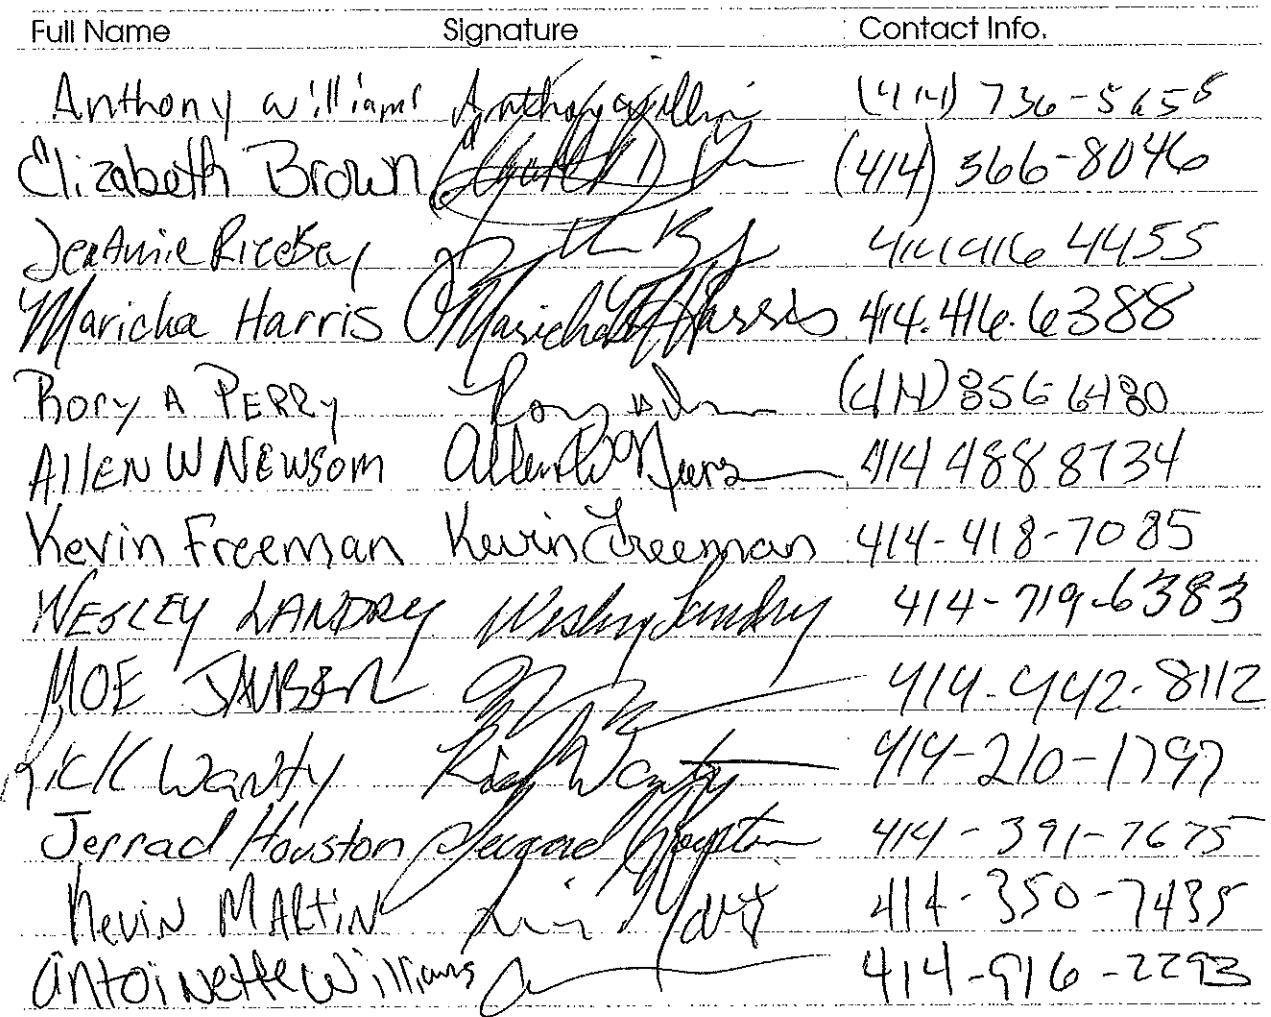 Full Name Signature Contact Info.
Anthony Williams Anthony Willia (414) 736-5655
Elizabeth Brown (414) 566-8046
JeaAnnie RiceBey 4455
Maricha Harris Maricha Harris 414.416.6388
Rory A PERRY Rory (414) 856 6480
AllEN W NEWSOM Allen W 414 488 8734
Kevin Freeman Kevin Freeman 414-418-7085
WESLEY LANDRY Wesley Landry 414-719-6383
MOE 414-442-8112
Rick Wanty Rick Wanty 414-210-1797
Jerrad Houston Jerrad Houston 414-391-7675
Kevin MARTIN 414-350-7435
Antoinette Williams 414-916-2293